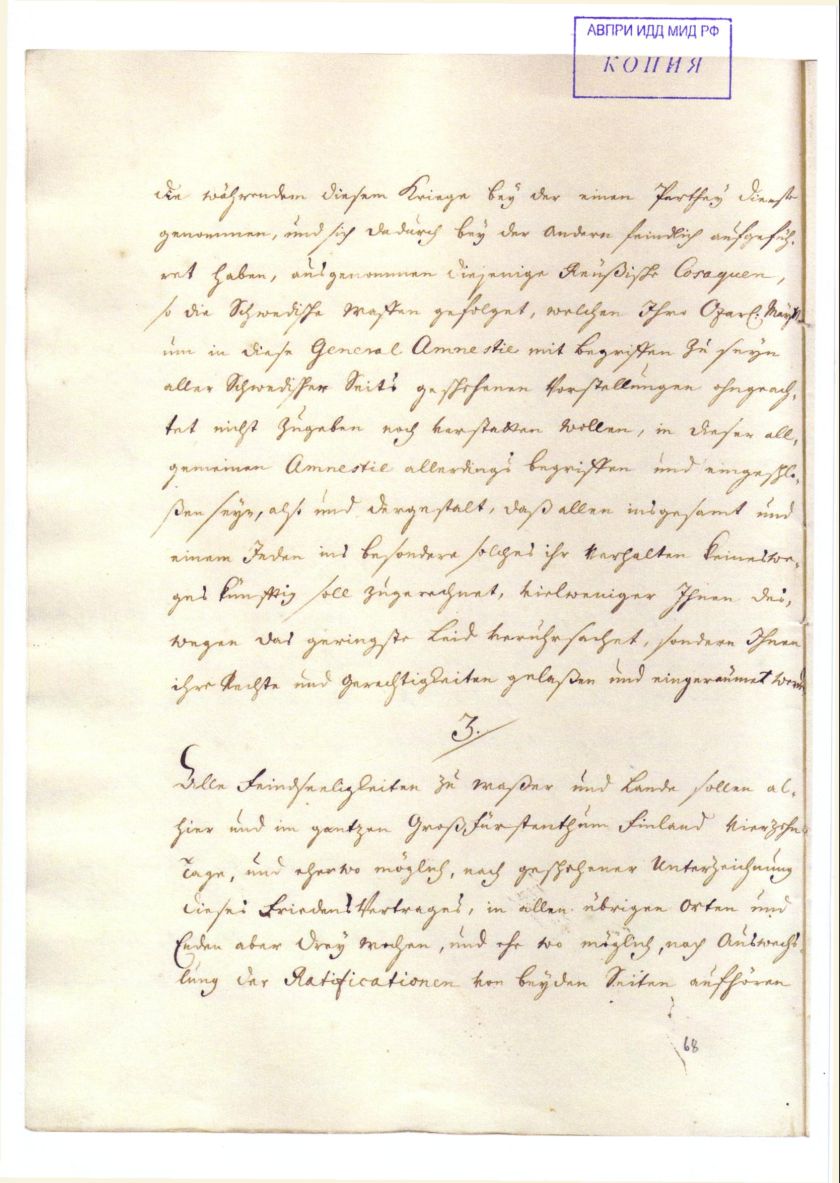 АВПРИ ИДД МИД РФ
КОПИЯ
die währendem diesem Kriege bey der einen Parthey Dienste
genommen, und sich dadurch bey der Andern feindlich aufgefüh-
ret haben, ausgenommen diejenige Reußische Cosaquen,
so die Schwedische Waffen gefolget, welchen Ihro Czar. Mayt.
um in diese General Amnestie mit begriffen zu seyn
aller Schwedischer Seits geschehenen Vorstellungen ohngeach-
tet nicht zugeben noch verstatten wollen, in dieser all-
gemeinen Amnestie allerdings begriffen und eingeschlo-
ßen seyn, also und dergestalt, daß allen insgesamt und
einem Jeden ins besondere solches ihr Verhalten keineswe-
ges künfftig soll zugerechnet, vielweniger Ihnen des-
wegen das geringste Leid veruhrsachet, sondern Ihnen
ihre Rechte und Gerechtigkeiten gelaßen und eingeräumet werden
3.
Alle Feindseeligkeiten zu Waßer und Lande sollen al-
hier und im gantzen Großfürstenthum Finland Vierzehn
Tage, und eher wo möglich, nach geschehener Unterzeichnung
dieses FriedensVertrages, in allen übrigen Orten und
Enden aber drey Wochen, und ehe wo möglich, nach Auswechs-
lung der Ratificationen von beyden Seiten aufhören
68